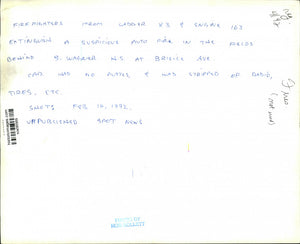 FIREFIGHTERS FROM LADDER 83 & ENGINE 163
EXTINGUISH A SUSPICIOUS AUTO FIRE IN THE FIELDS
BEHIND S. WAGNER H.S AT BRIELLE AVE
CAR HAD NO PLATES & WAS STRIPPED OF RADIO,
TIRES, ETC.
SHOT: FEB 10, 1992,
UNPUBLISHED SPOT NEWS
(not used)
PHOTO BY